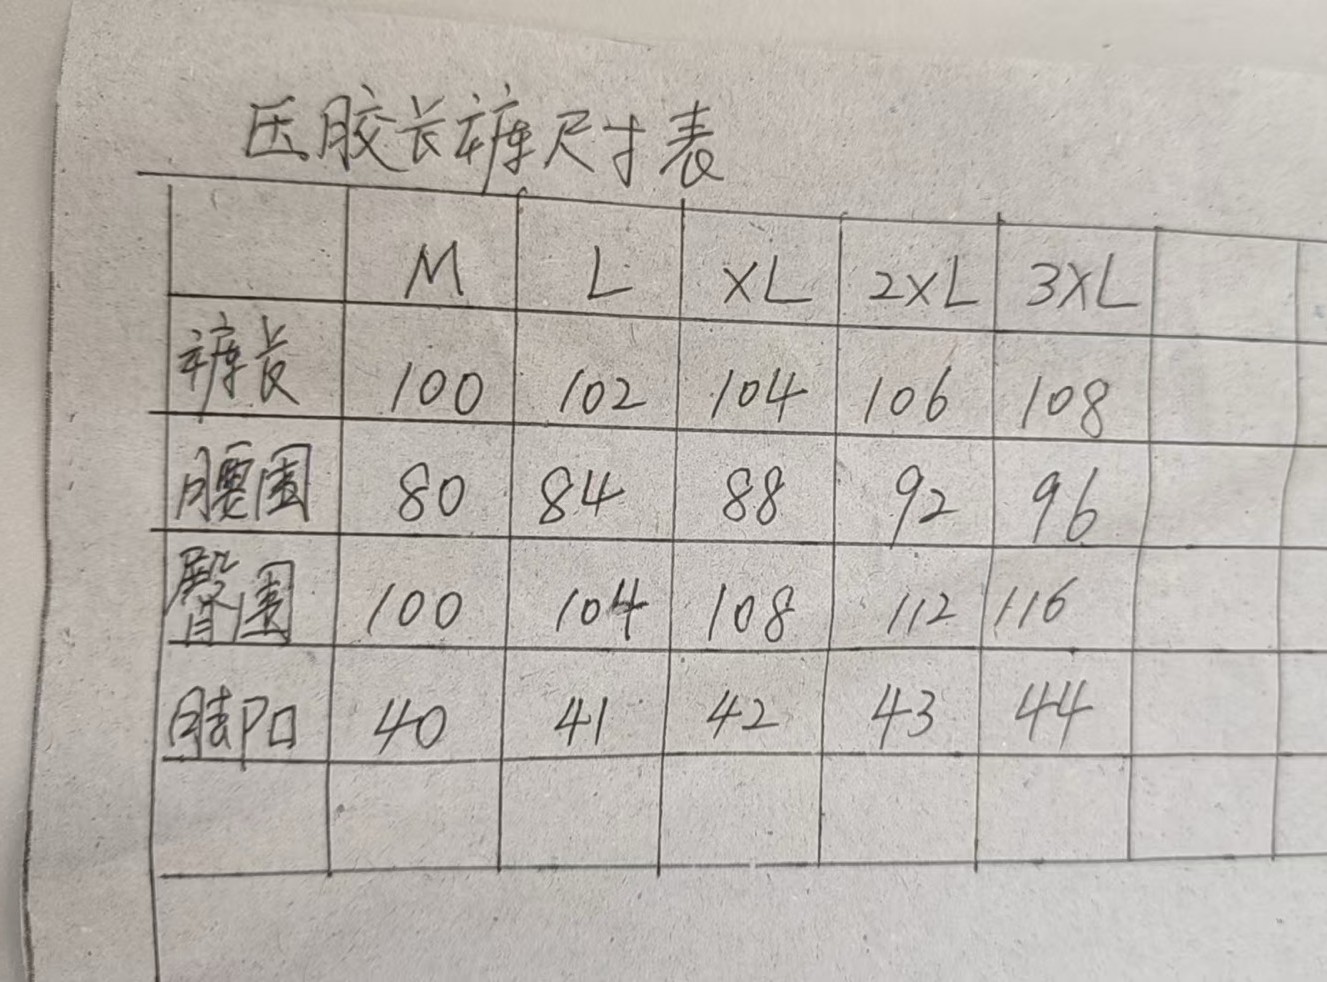 压胶长裤尺寸表
M L XL 2XL 3XL
裤长 100 102 104 106 108
腰围 80 84 88 92 96
臀围 100 104 108 112 116
脚口 40 41 42 43 44